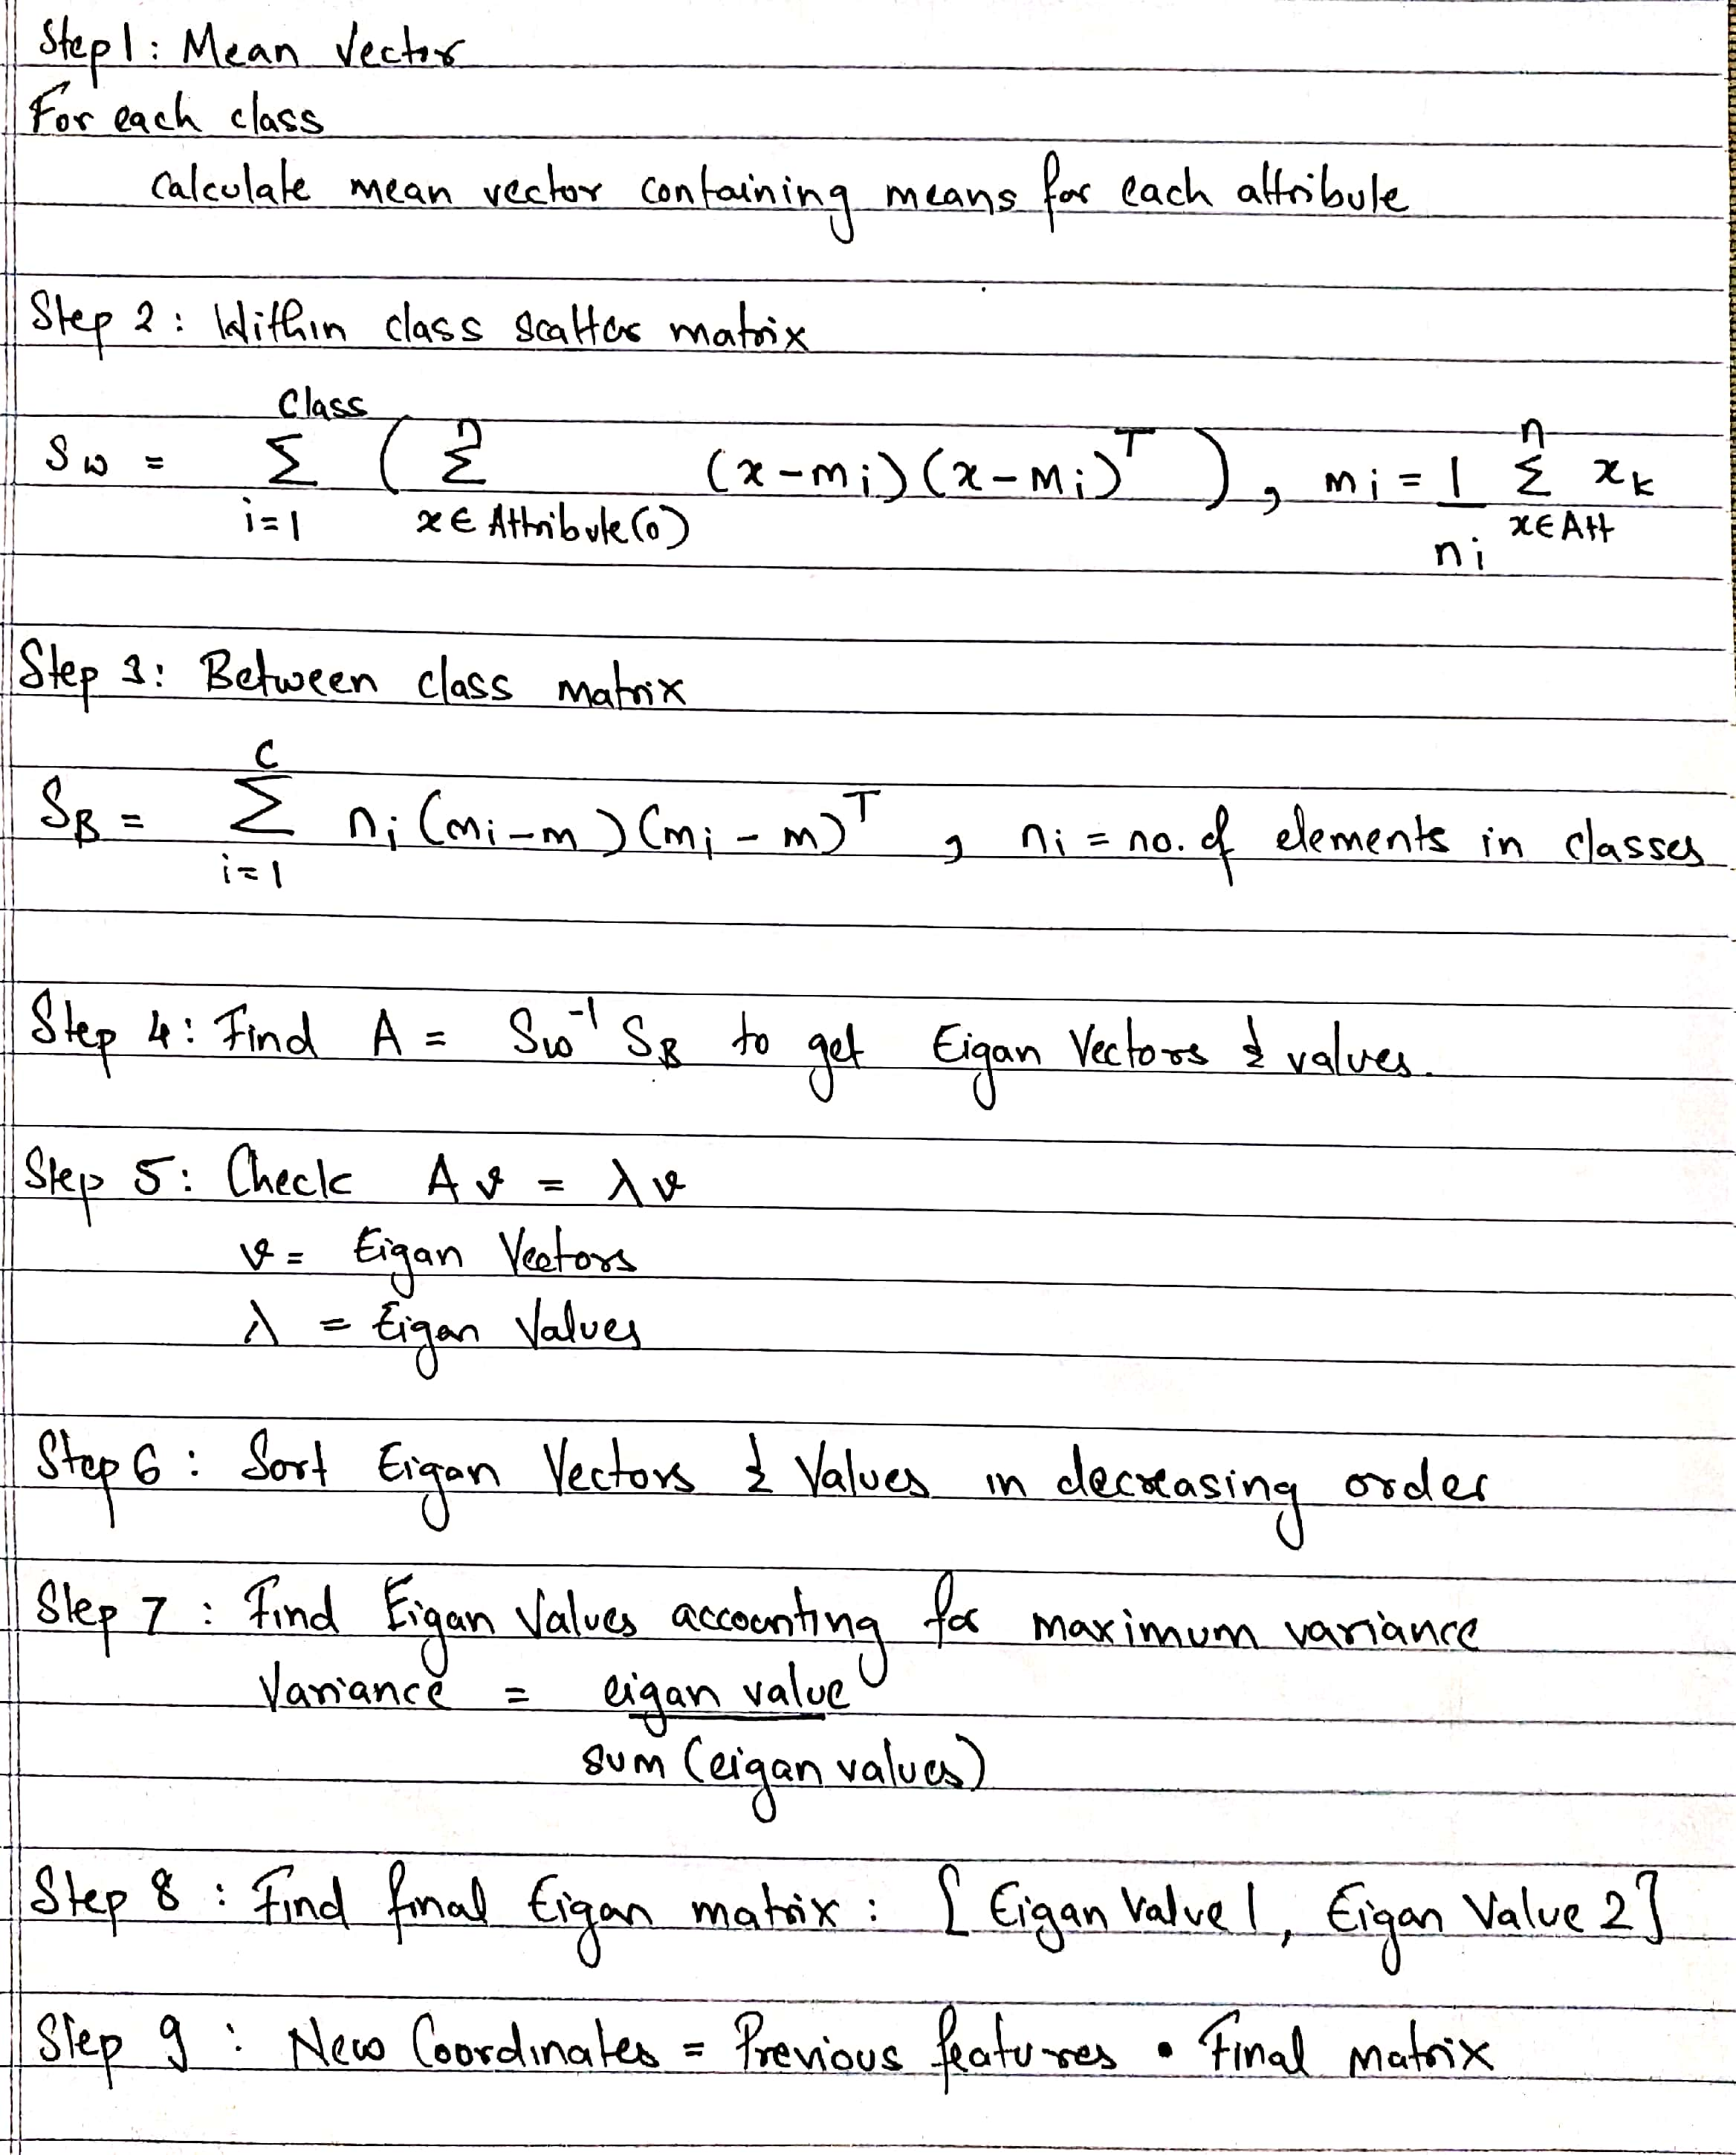 Step 1: Mean Vector
For each class
Calculate mean vector containing means for each attribute
Step 2: Within class scatter matrix
S_w = Σ_{i=1}^{Class} ( Σ_{x∈Attribute(0)}^{n} (x-m_i)(x-m_i)^T ), m_i = 1/n_i Σ_{x∈Att}^{n} x_k
Step 3: Between class matrix
S_B = Σ_{i=1}^{C} n_i (m_i-m)(m_i-m)^T , n_i = no. of elements in classes
Step 4: Find A = S_w^{-1} S_B to get Eigan Vectors & values.
Step 5: Check A v = λ v
v = Eigan Vectors
λ = Eigan Values
Step 6: Sort Eigan Vectors & Values in decreasing order
Step 7: Find Eigan Values accounting for maximum variance
Variance = eigan value
sum (eigan values)
Step 8: Find final Eigan matrix: [Eigan Value 1, Eigan Value 2]
Step 9: New Coordinates = Previous features • Final matrix